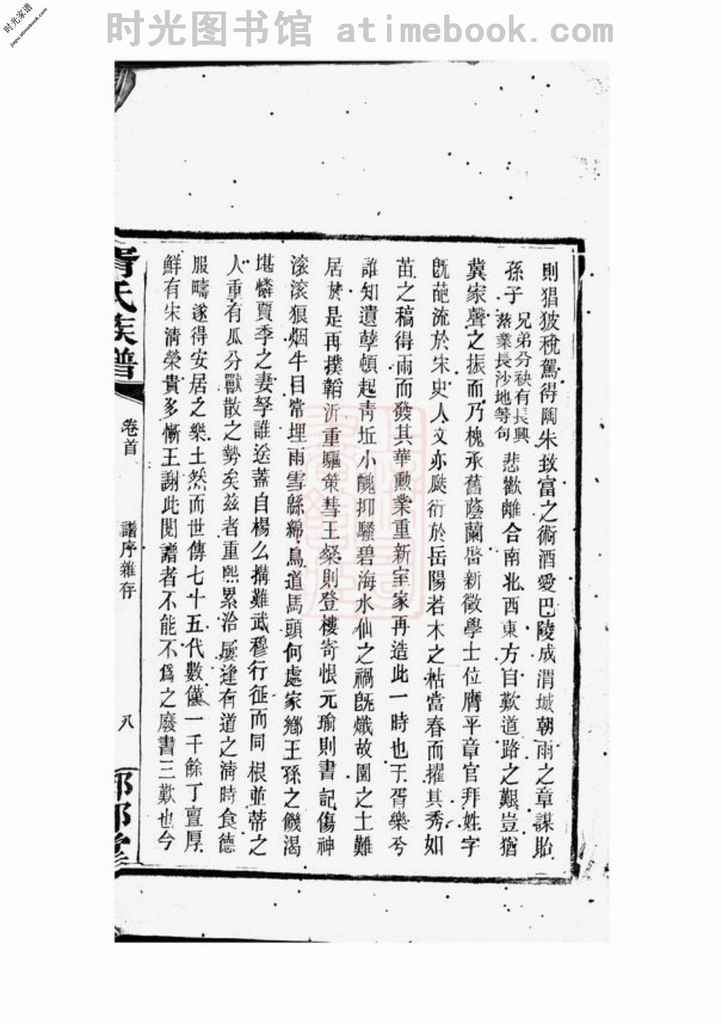 时光图书馆 atimebook.com
时光家谱
jiapu.atimebook.com
則猖披稅駕得陶朱致富之術酒愛巴陵成渭城朝雨之章謀貽
孫子兄弟分袂有長興落業長沙地等句悲歡離合南北西東方自歎道路之艱豈猶
冀家聲之振而乃槐承舊蔭蘭啓新徵學士位膺平章官拜姓字
旣葩流於宋史人文亦啟衍於岳陽若木之枯當春而擢其秀如
苗之稿得雨而發其華勲業重新室家再造此一時也于胥樂兮
誰知遺孽頓起靑坵小醜抑騷碧海水仙之禍旣熾故園之土難
居於是再撲韜沂重驅策彗王粲則登樓寄恨元瑜則書記傷神
滾滾狼烟牛目常埋雨雪緜緜鳥道馬頭何處家鄕王孫之饑渴
堪憐賈季之妻孥誰送蓋自楊么搆難武穆行征而同根並蒂之
人重有瓜分獸散之勢矣茲者重熙累洽屢逢有道之淸時食德
服疇遂得安居之樂土然而世傳七十五代數僅一千餘丁亶厚
鮮有宋淸榮貴多慚王謝此閱譜者不能不爲之廢書三歎也今
胥氏族譜
卷首
譜序雜存
八